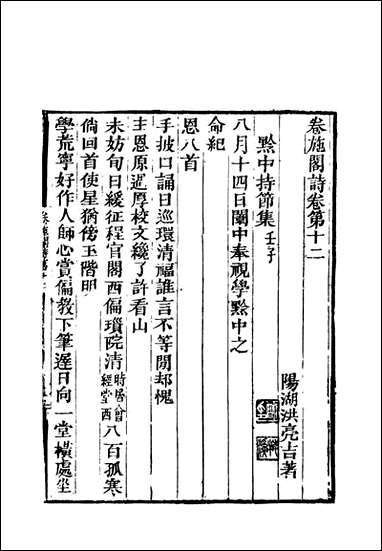 卷施閣詩卷第十二
陽湖洪亮吉著
黔中持節集 壬子
八月十四日闈中奉視學黔中之
命紀
恩八首
手披口誦日巡環清福誰言不等閒却愧
主恩原厚校文纔了許看山
未妨旬日緩征程官閣西偏瑣院清 時居會經堂西 八百孤寒
倘回首使星猶傍玉階明
學荒寧好作人師心賞偏教下筆遲日向一堂橫處坐